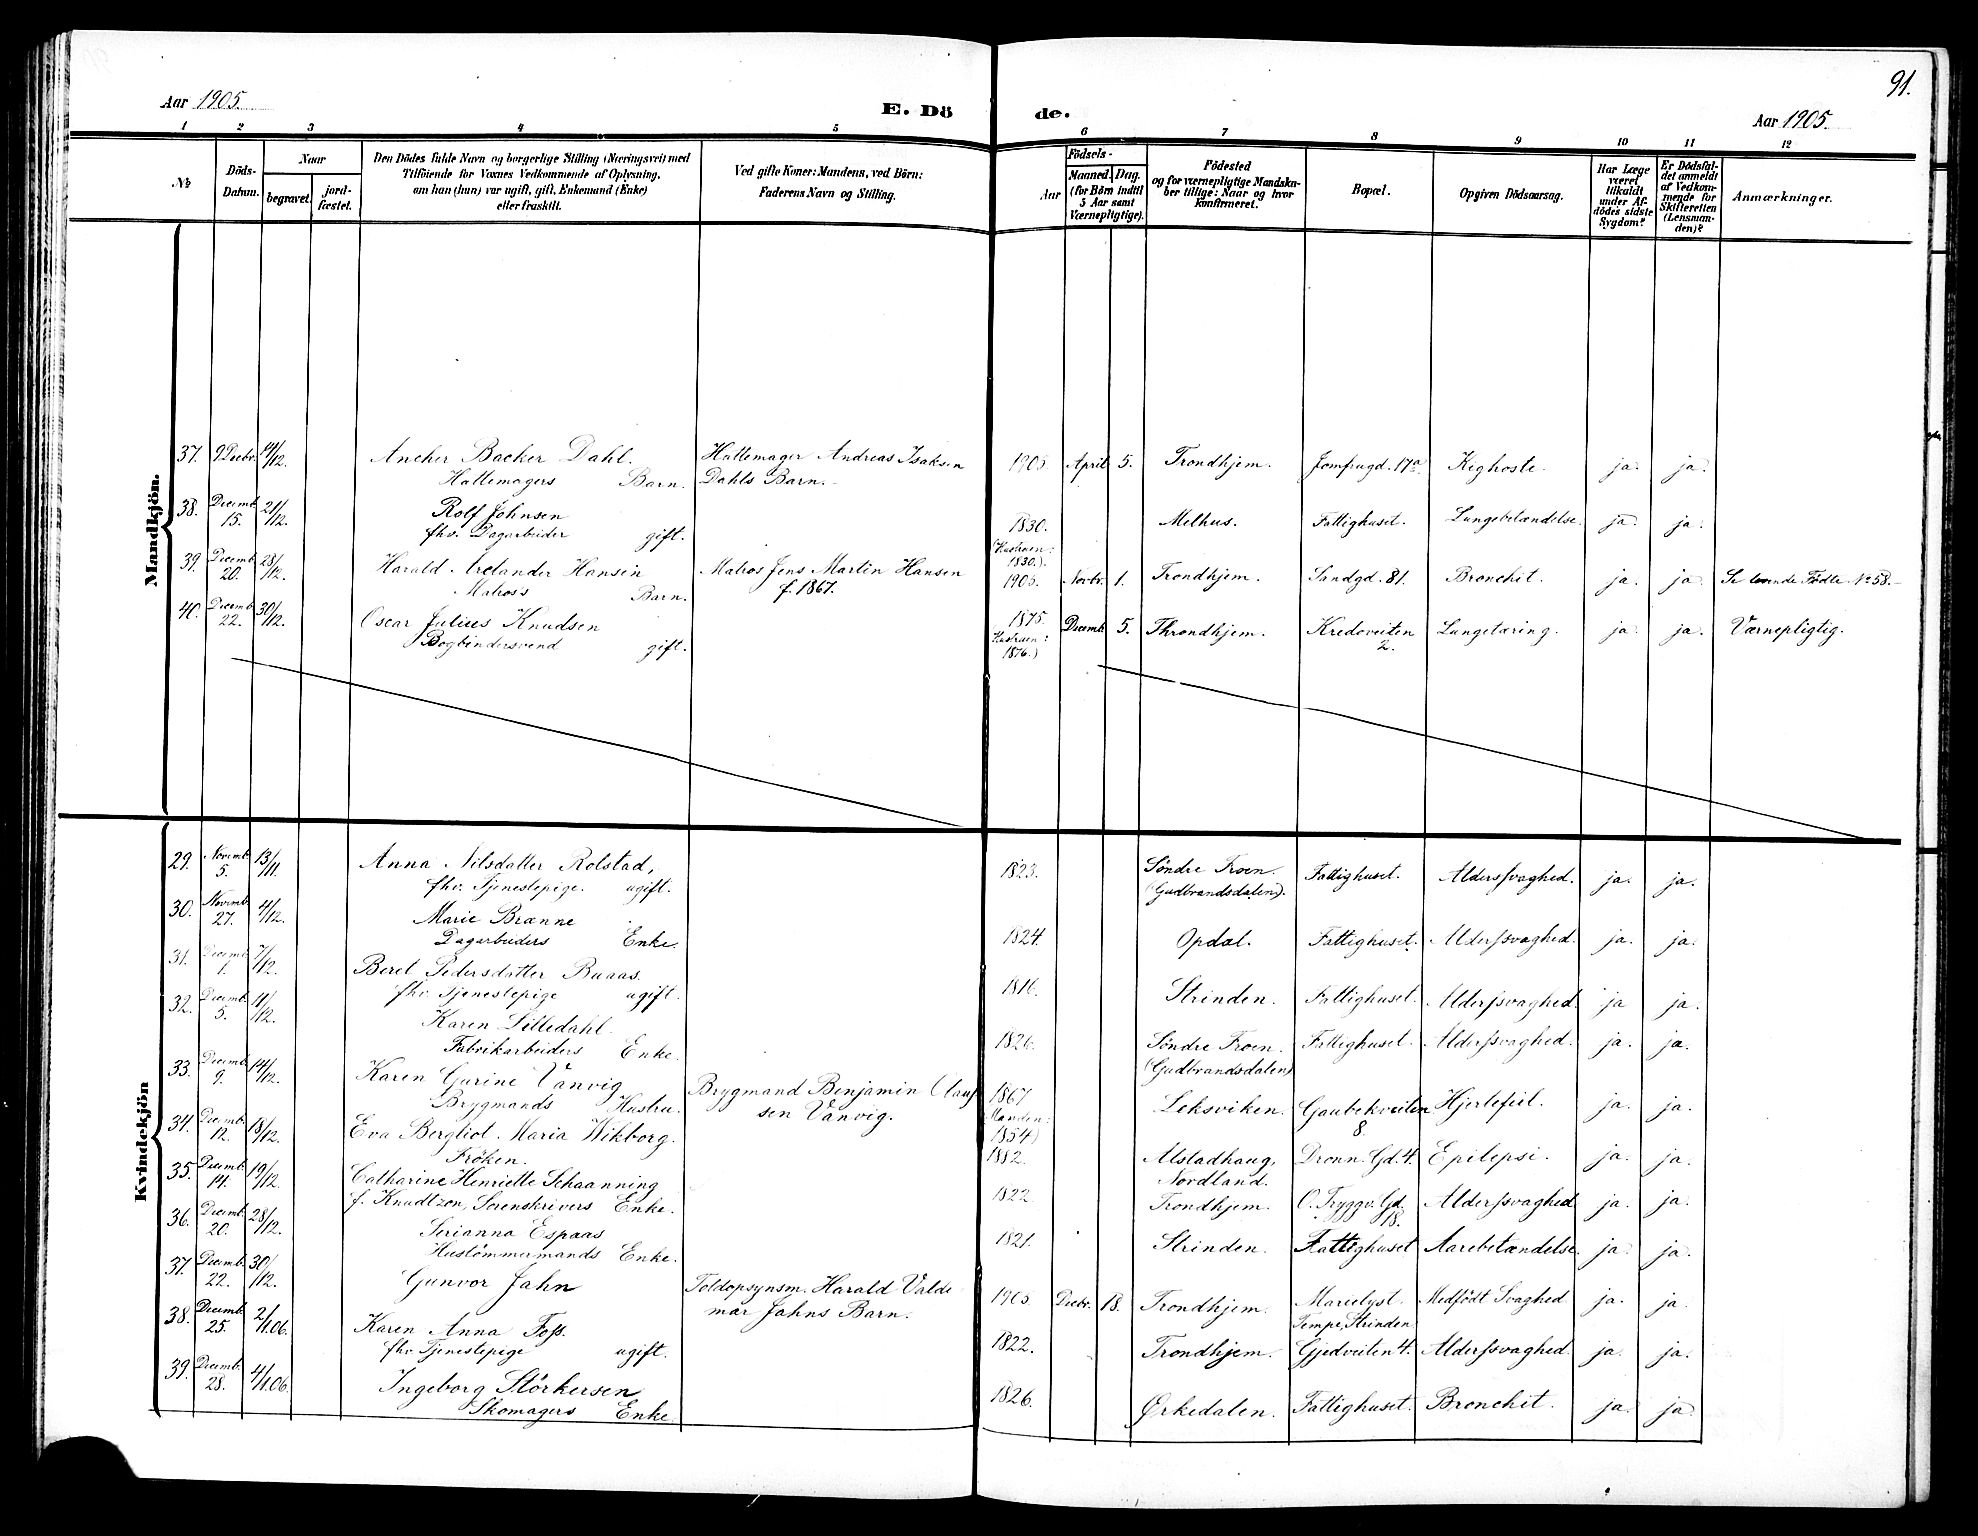 91.
Aar 1905.
E. Dö de.
Aar 1905.
1 2 3 4 5 6 7 8 9 10 11 12
No
Döds-Datum.
Naar
begravet.
jord-fæstet.
Den Dödes fulde Navn og borgerlige Stilling (Næringsvei) med
Tilföiende for Voxnes Vedkommende af Oplysning,
om han (hun) var ugift, gift, Enkemand (Enke)
eller fraskilt.
Ved gifte Koner: Mandens, ved Börn:
Faderens Navn og Stilling.
Födsels-
Aar
Maaned. Dag.
(for Börn indtil
5 Aar samt
Værnepligtige).
Födested
og for værnepligtige Mandska-
ber tillige: Naar og hvor
konfirmeret.
Bopæl.
Opgiven Dödsaarsag.
Har Læge
været
tilkaldt
under Af-
dödes sidste
Sygdom?
Er Dödsfal-
det anmeldt
af Vedkom-
mende for
Skifteretten
(Lensman-
den)?
Anmærkninger.
Mandkjön.
37. 9 Decbr. 14/12. Ancher Backer Dahl. Hattemager Andreas Isaksen 1905 April 5. Trondhjem. Jomfrugd. 17a Kighoste. ja. ja.
Hattemagers Barn. Dahls Barn.
38. Decemb. 15. 21/12. Rolf Johnsen 1830. Melhus. Fattighuset. Lungebetændelse. ja. ja.
fhv. Dagarbeider gift. (Hustruen: 1830.).
39. Decemb. 20. 28/12. Harald Arelander Hansen Matros Jens Martin Hansen 1905. Novbr. 1. Trondhjem. Sandgd. 81. Bronchit. ja. ja. Se levende Födte No 58.
Matros's Barn. f. 1867.
40. Decemb. 22. 30/12. Oscar Julius Knudsen 1875 Decemb. 5. Throndhjem. Kredoveiten 2. Lungetæring. ja. ja. Værnepligtig.
Bogbindersvend gift. (Hustruen: 1876.)
Kvindekjön
29. Novemb. 5. 13/11. Anna Nilsdatter Rolstad, 1823. Söndre Froen. Fattighuset. Aldersvaghed. ja. ja.
fhv. Tjenestepige. ugift. (Gudbrandsdalen).
30. Novemb. 27. 4/12. Marie Brænne 1824. Opdal. Fattighuset. Aldersvaghed. ja. ja.
Dagarbeiders Enke.
31. Decemb. 1. 7/12. Beret Pedersdatter Buaas. 1816. Strinden. Fattighuset. Aldersvaghed ja ja.
fhv. Tjenestepige ugift.
32. Decemb. 5. 11/12. Karen Lilledahl. 1826. Söndre Froen. Fattighuset. Aldersvaghed. ja. ja.
Fabrikarbeiders Enke. (Gudbrandsdalen)
33. Decemb. 9. 14/12. Karen Gurine Vanvig Brygmand Benjamin Claus- 1867 Leksviken. Gaubekveiten 8. Hjertefeil. ja. ja.
Brygmands Hustru. sen Vanvig. (Manden: 1854)
34. Decemb. 12. 18/12. Eva Bergliot Maria Wikborg. 1882. Alstadhaug, Dronn. Gd. 4. Epilepsi. ja. ja.
Fröken. Nordland.
35. Decemb. 14. 19/12. Catharine Henriette Schaanning 1822. Trondhjem. O. Tryggv. Gd. 18. Aldersvaghed ja. ja.
f. Knudtzon, Sorenskrivers Enke.
36. Decemb. 20. 28/12. Serianna Espaas 1821. Strinden. Fattighuset Aarebetændelse. ja. ja.
Hustömmermands Enke.
37. Decemb. 22. 30/12. Gunvor Jahn Toldopsynsm. Harald Valde- 1905. Decbr. 18. Trondhjem. Marielyst. Medfödt Svaghed ja. ja.
mar Jahns Barn. Tempe, Strinden
38. Decemb. 25. 2/1.06. Karen Anna Foss. 1822. Trondhjem. Gjedveiten 4. Aldersvaghed. ja. ja.
fhv. Tjenestepige ugift.
39. Decemb. 28. 4/1.06. Ingeborg Störkersen 1826. Ørkedalen. Fattighuset. Bronchit. ja. ja.
Skomagers Enke